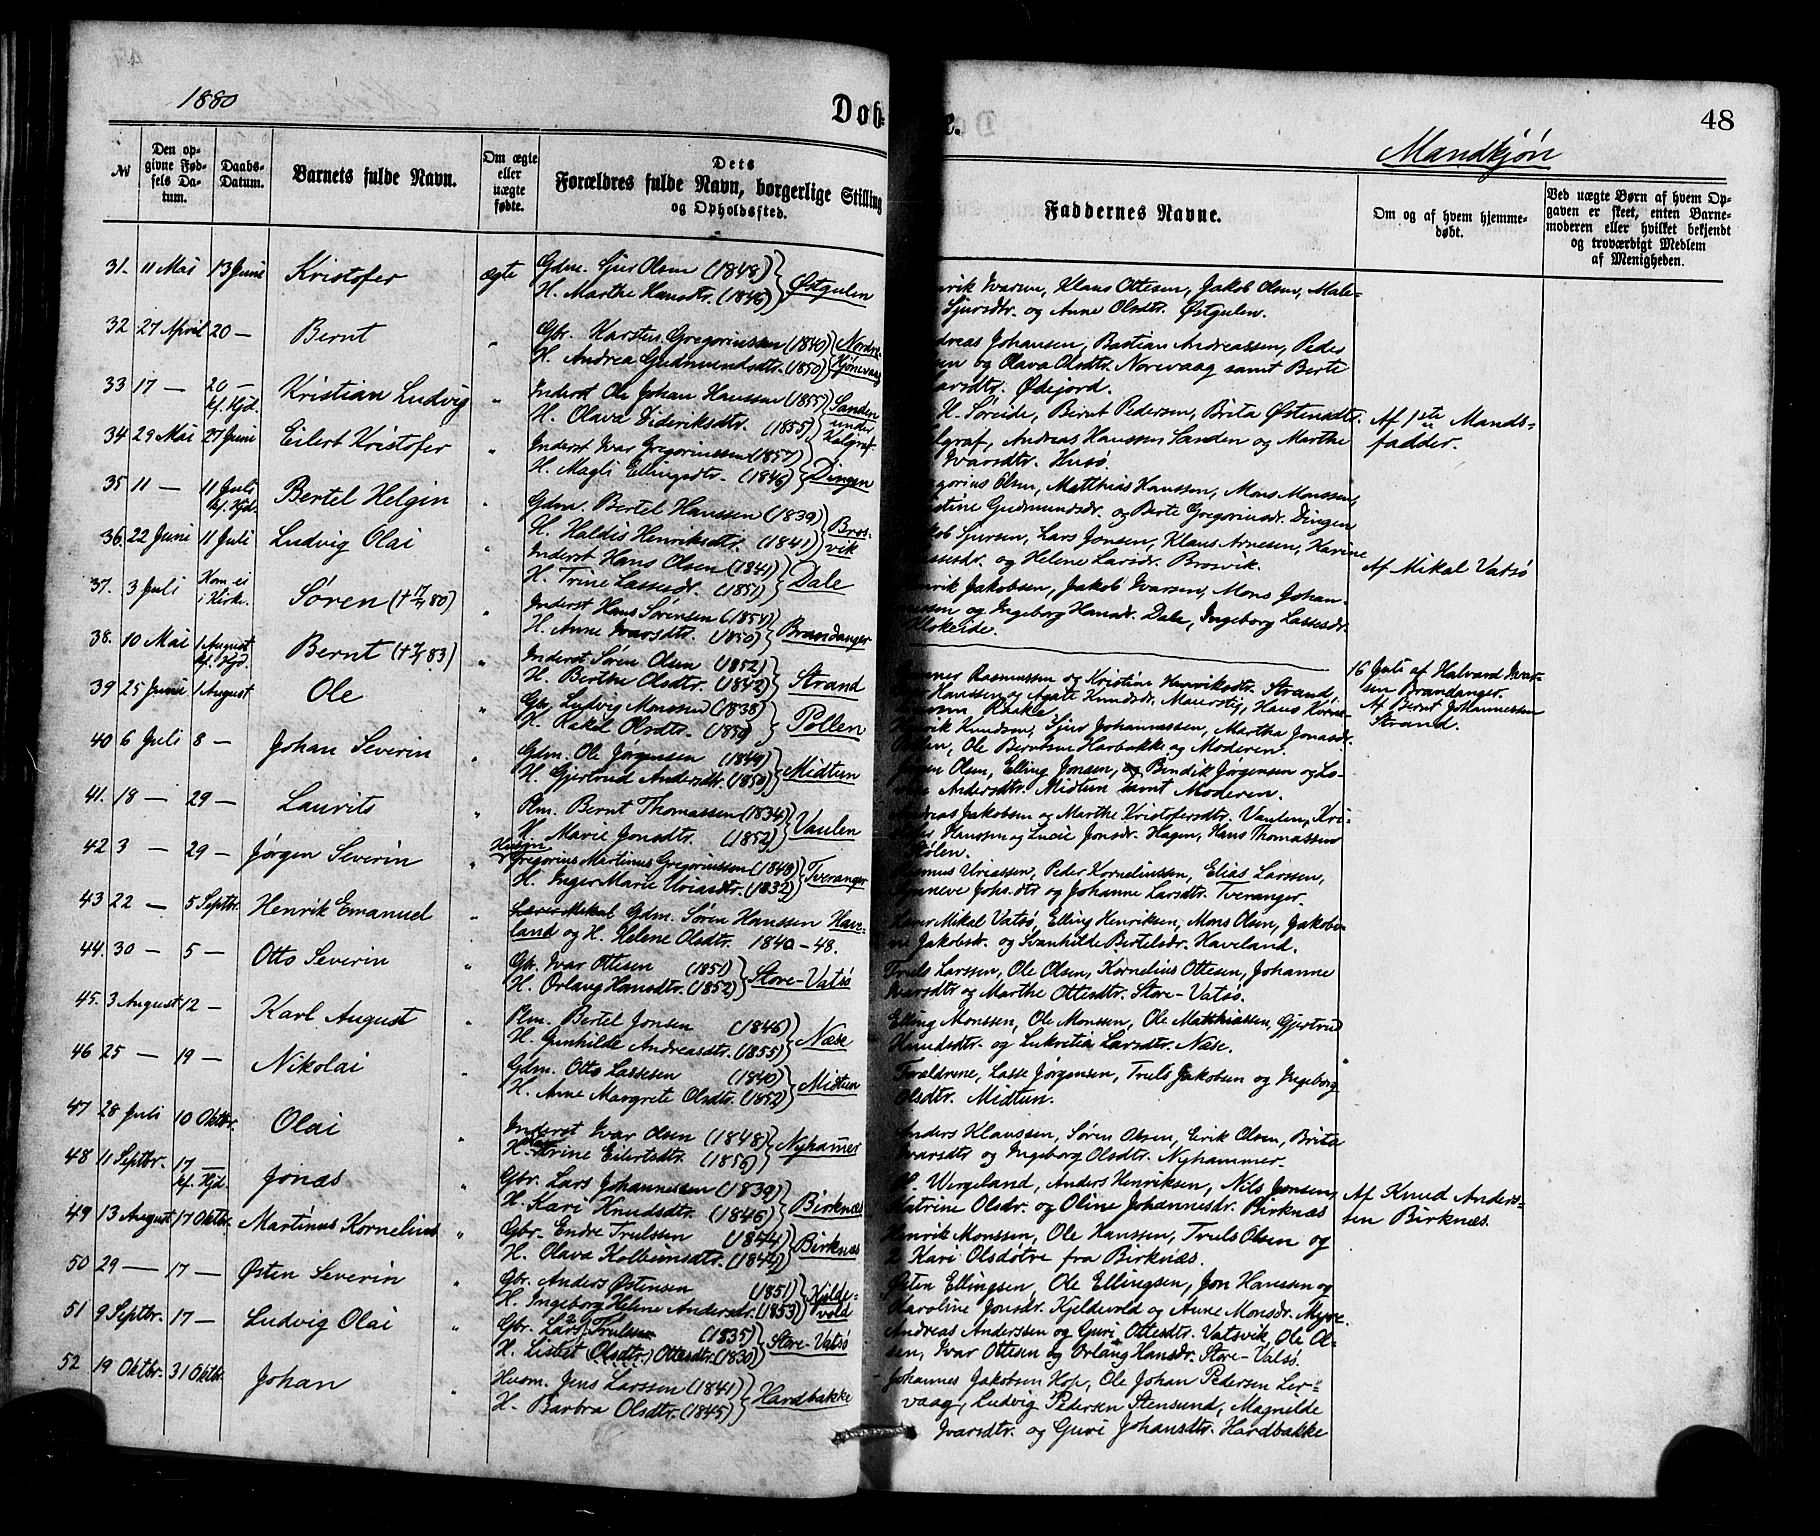 1880
Døb-
e.
48
Mandkjøn
№
Den op-
givne Fød-
sels Da-
tum.
Daabs-
Datum.
Barnets fulde Navn.
Om ægte
eller
uægte
fødte.
Dets
Forældres fulde Navn, borgerlige Stilling
og Opholdssted.
Faddernes Navne.
Om og af hvem hjemme-
døbt.
Ved uægte Børn af hvem Op-
gaven er skeet, enten Barne-
moderen eller hvilket bekjendt
og troværdigt Medlem
af Menigheden.
31. 11 Mai 13 Juni Kristofer ægte Gdm. Sjur Olsen (1848)
H. Marthe Hansdtr. (1846) Østgulen
Ivarsen, Klaus Ottesen, Jakob Olsen, Male-
Sjursdtr. og Anne Olsdtr. Østgulen.
32 27 April 20 — Bernt " Gbr. Karsten Gregoriussen (1840) Nordre
H. Andrea Gudmundsdtr. (1850) Hjønevaag
dreas Johansen, Bastian Andreassen, Peder
sen og Olava Olsdtr. Norevaag samt Berte
Larsdtr. Ødejord.
33 17 — 20 — Kristian Ludvig " Inderst Ole Johan Hanssen (1855) Sanden
kf. Hjd. H. Olava Dideriksdtr. (1855) under
Kalgraf
H. Søreide, Bernt Pedersen, Brita Østensdtr.
Kalgraf, Andreas Hanssen Sanden og Marthe
Ivarsdtr. Husø.
Af 1ste Mands-
fadder.
34 29 Mai 27 Juni Eilert Kristofer " Inderst Ivar Gregoriussen (1857)
H. Magli Ellingsdtr. (1846) Dingen
gorius Olsen, Matthias Hanssen, Mons Monssen,
stine Gudmundsdr. og Berte Gregoriusdr. Dingen
35 11 — 11 Juli Bertel Helgin " Gdm. Bertel Hanssen (1839) Bros-
kf. Hjd. H. Haldis Henriksdtr. (1841) vik
kob Sjursen, Lars Jonsen, Klaus Arnesen, Karine
Lassesdr. og Helene Larsdr. Brosvik.
Af Mikal Vatsø
36. 22 Juni 11 Juli Ludvig Olai " Inderst Hans Olsen (1841) Dale
H. Trine Lassesdr. (1851)
Henrik Jakobsen, Jakob Ivarsen, Mons Johan-
nessen og Ingeborg Hansdr. Dale, Ingeborg Lassesdr.
Klokeide.
37. 3 Juli Kom ei
i Kirke. Søren (+ 17/7 80) " Inderst Hans Sørensen (1854)
H. Anne Ivarsdtr. (1850) Brandanger
16 Juli af Halvard Ivar-
sen Brandanger.
38. 10 Mai 1 August
kf. Hjd. Bernt (+ 7/5 83) " Inderst Søren Olsen (1852)
H. Berthe Olsdtr. (1842) Strand
Rasmussen og Kristine Henriksdtr. Strand,
Hanssen og Agate Knudsdr. Maurstig, Hans Korne-
Raake.
Af Bernt Johannessen
Strand.
39 25 Juni 1 August Ole " Gbr. Ludvig Monssen (1838)
H. Rakel Olsdtr. (1850) Pollen
Henrik Knudsen, Sjur Johannassen, Martha Jonasdr.
Pollen, Ole Berntsen Harbakke og Moderen.
40 6 Juli 8 — Johan Severin " Gdm. Ole Jørgensen (1849)
H. Gjertrud Andersdtr. (1850) Midtun
Jørgen Olsen, Elling Jonsen, og Bendik Jørgensen og Lo-
Andersdtr. Midtun samt Moderen.
41. 18 — 29 — Laurits " Plm. Bernt Thomassen (1834)
H. Marie Jonsdtr. (1852) Vaulen
Andreas Jakobsen og Marthe Kristofersdtr. Vaulen, Kri-
Hanssen og Lucie Jonsdr. Hagen, Hans Thomassen
Stølen.
42 3 — 29 — Jørgen Severin " Husm
Gregorius Martinus Gregoriussen (1848)
H. Inger Marie Uriasdtr. (1832) Tveranger
Rasmus Uriassen, Peder Kornelinssen, Elias Larssen,
Synneve Johs.dtr og Johanne Larsdtr. Tveranger.
43 22 — 5 Septbr. Henrik Emanuel " Lærer Mikal Gdm. Søren Hanssen Have-
land og H. Helene Olsdtr. 1840-48.
Lærer Mikal Vatsø, Elling Henriksen, Mons Olsen, Jakobi-
ne Jakobsdr. og Svanhilde Bertelsdr. Haveland.
44. 30 — 5 — Otto Severin " Gbr. Ivar Ottesen (1851)
H. Orlaug Hansdtr. (1852) Store-Vatsø
Truls Larssen, Ole Olsen, Kornelius Ottesen, Johanne
Ivarsdtr og Marthe Ottesdtr. Store-Vatsø.
45. 3 August 12 — Karl August " Plm. Bertel Jonsen (1846)
H. Gunhilde Andreasdtr. (1855) Næse
Elling Monssen, Ole Monssen, Ole Matthiassen, Gjertrud
Knudsdtr. og Lukretia Larsdtr. Næse.
46 25 — 19 — Nikolai " Gdm. Otto Lassesen (1840)
H. Anne Margrete Olsdtr. (1852) Midtun
Forældrene, Lasse Jørgensen, Truls Jakobsen og Ingeborg
Olsdtr. Midtun.
47 28 Juli 10 Oktbr. Olai " Inderst Ivar Olsen (1848)
H. Trine Eilertsdtr. (1856) Nyhamer
Anders Klaussen, Søren Olsen, Eirik Olsen, Brita
Ivarsdtr og Ingeborg Olsdtr. Nyhammer.
48 11 Septbr. 17 —
kf. Hjd. Jonas " Gbr. Lars Johannessen (1839)
H. Kari Knudsdtr. (1846) Birknæs
H. Wergeland, Anders Henriksen, Nils Jonsen,
Katrine Olsdr. og Oline Johannesdr. Birknæs
Af Knud Anders-
sen Birknæs.
49 13 August 17 Oktbr. Martinus Kornelius " Gbr. Endre Trulssen (1844)
H. Olava Kolbeinsdtr. (1844) Birknæs
Henrik Monssen, Ole Hanssen, Truls Olsen og
2 Kari Olsdøtre fra Birknæs.
50 29 — 17 — Østen Severin " Gbr. Anders Østensen (1851) Kjelde-
H. Ingeborg Helene Andersdtr. (1853) vold
Peten Ellingsen, Ole Ellingsen, Jon Hanssen og
Karoline Jonsdr. Kjeldevold og Anne Monsdr. Myre.
51 9 Septbr. 17 — Ludvig Olai " Gbr. Lars Trulssen (1835)
H. Lisbet (Olsdtr.) Ottesdtr. (1830) Store-Vatsø
Andreas Anderssen og Guri Ottesdtr. Vatsvik, Ole Ol-
sen, Ivar Ottesen og Orlaug Hansdr. Store-Vatsø.
52 19 Oktbr. 31 Oktbr. Johan " Husm. Jens Larssen (1841)
H. Barbra Olsdtr. (1845) Hardbakke
Johannes Jakobsen Hop, Ole Johan Pedersen Ler-
vaag, Ludvig Pedersen Stensund, Magnilde
Ivarsdtr. og Guri Johansdtr. Hardbakke